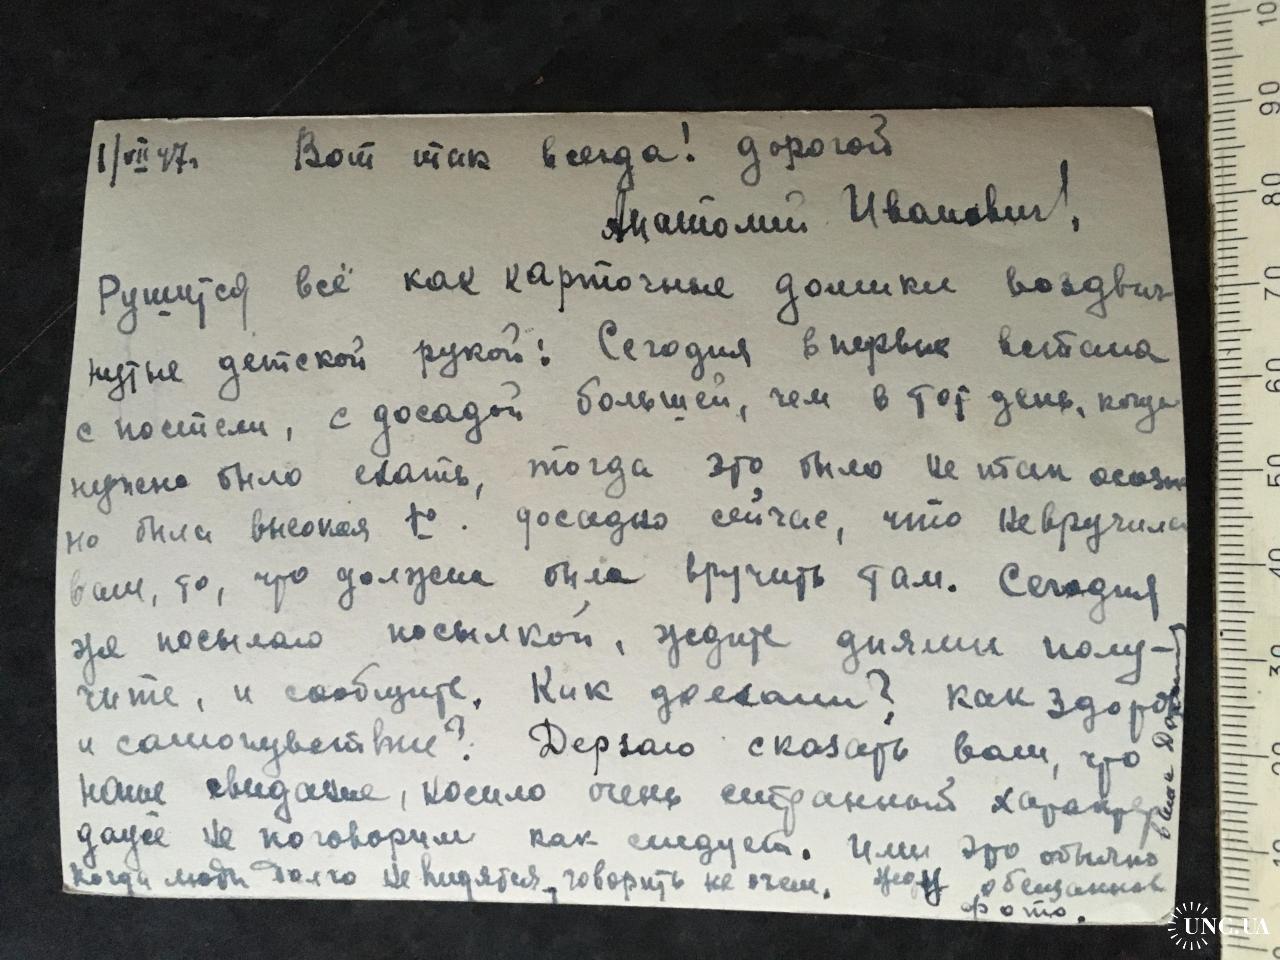 1/VII 47г. Вот так всегда! дорогой
Анатолий Иванович!
Рушится всё как карточные домики воздвиг-
нутые детской рукой! Сегодня впервые встала
с постели, с досадой большей, чем в тот день, когда
нужно было ехать, тогда это было не так осозн
но была высокая t°. досадно сейчас, что не вручила
вам, то, что должна была вручить там. Сегодня
же посылаю посылкой, ждите днями полу-
чите, и сообщите. Как доехали? Как здоров
и самочувствие? Дерзаю сказать вам, что
наше свидание, носило очень странный характер
даже не поговорили как следует. Или это обычно
когда люди долго не видятся, говорить не о чем. жду обещанное
фото.
ваша
UNC.UA
10
20
30
40
50
60
70
80
90